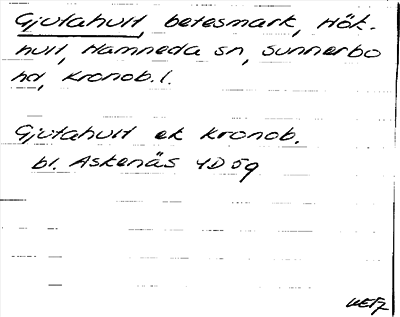 Gjutahult, betesmark, Hök-
hult, Hamneda sn, Sunnerbo
hd, Kronob. l.
Gjutahult ek Kronob.
bl. Askenäs 4D5g